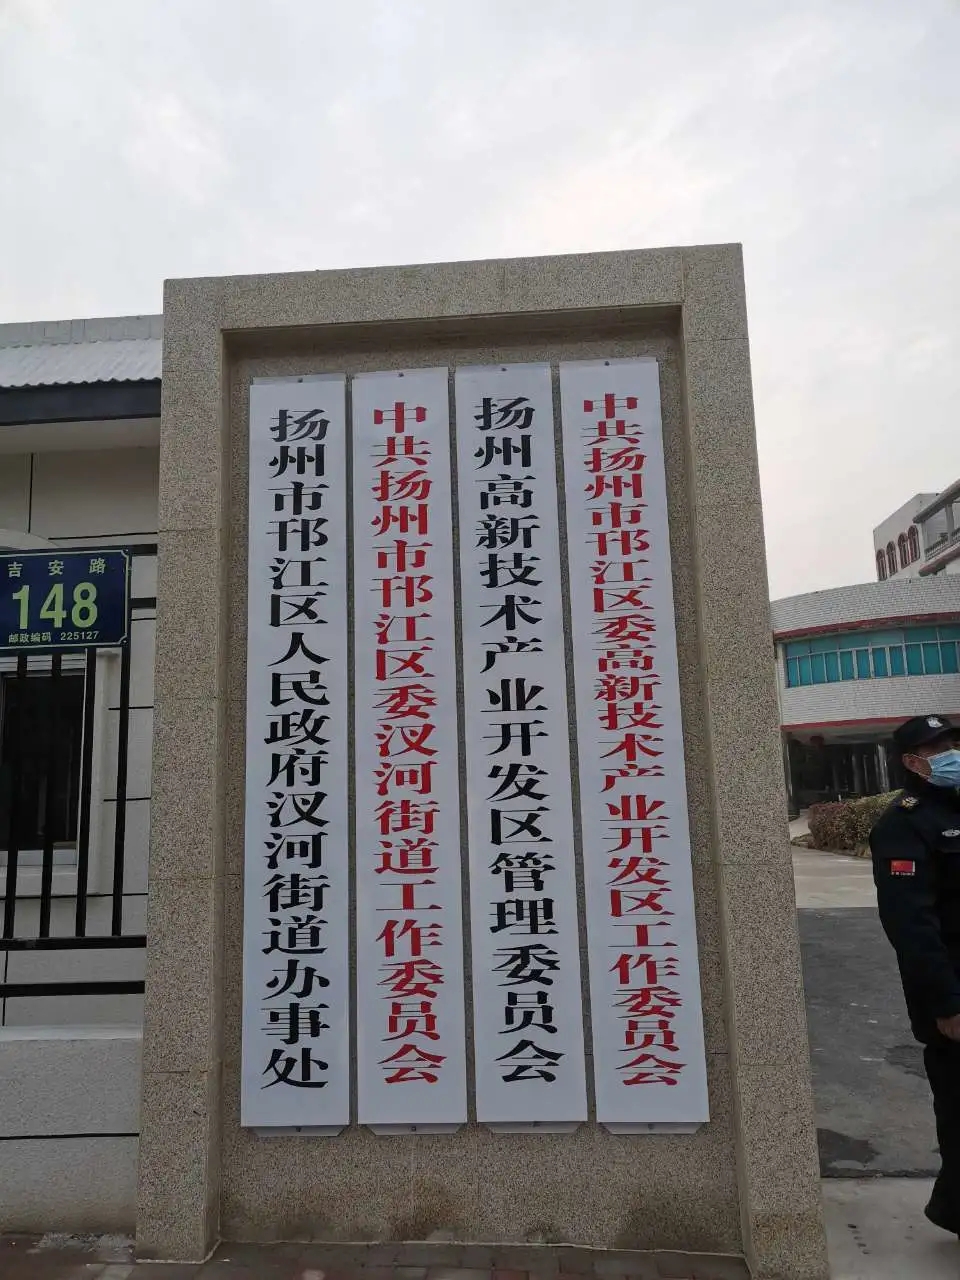 中共扬州市邗江区委高新技术产业开发区工作委员会
扬州高新技术产业开发区管理委员会
中共扬州市邗江区委汊河街道工作委员会
扬州市邗江区人民政府汊河街道办事处
吉安路
148
邮政编码 225127